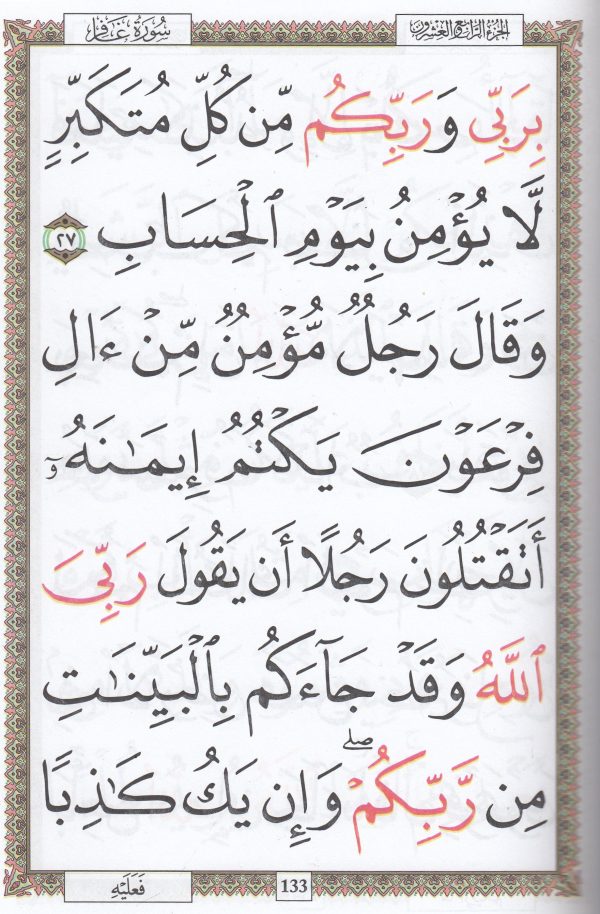 سُورَةُ غَافِرٍ
الجُزْءُ الرَّابِعُ وَالعِشْرُونَ
بِرَبِّي وَرَبِّكُم مِّن كُلِّ مُتَكَبِّرٍ
لَّا يُؤْمِنُ بِيَوْمِ ٱلْحِسَابِ ٢٧
وَقَالَ رَجُلٌ مُّؤْمِنٌ مِّنْ ءَالِ
فِرْعَوْنَ يَكْتُمُ إِيمَـٰنَهُۥٓ
أَتَقْتُلُونَ رَجُلًا أَن يَقُولَ رَبِّيَ
ٱللَّهُ وَقَدْ جَآءَكُم بِٱلْبَيِّنَـٰتِ
مِن رَّبِّكُمْ ۖ وَإِن يَكُ كَـٰذِبًا
133
فَعَلَيْهِ